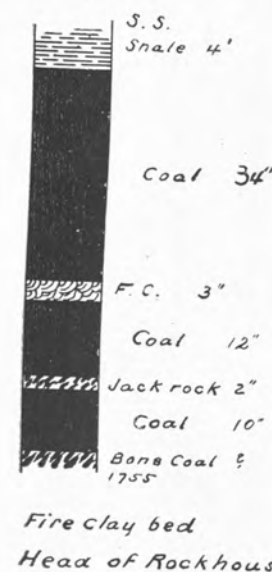 S.S.
Shale 4'
Coal 34"
F.C. 3"
Coal 12"
Jack rock 2"
Coal 10"
Bone Coal ?
1755
Fire clay bed
Head of Rockhous